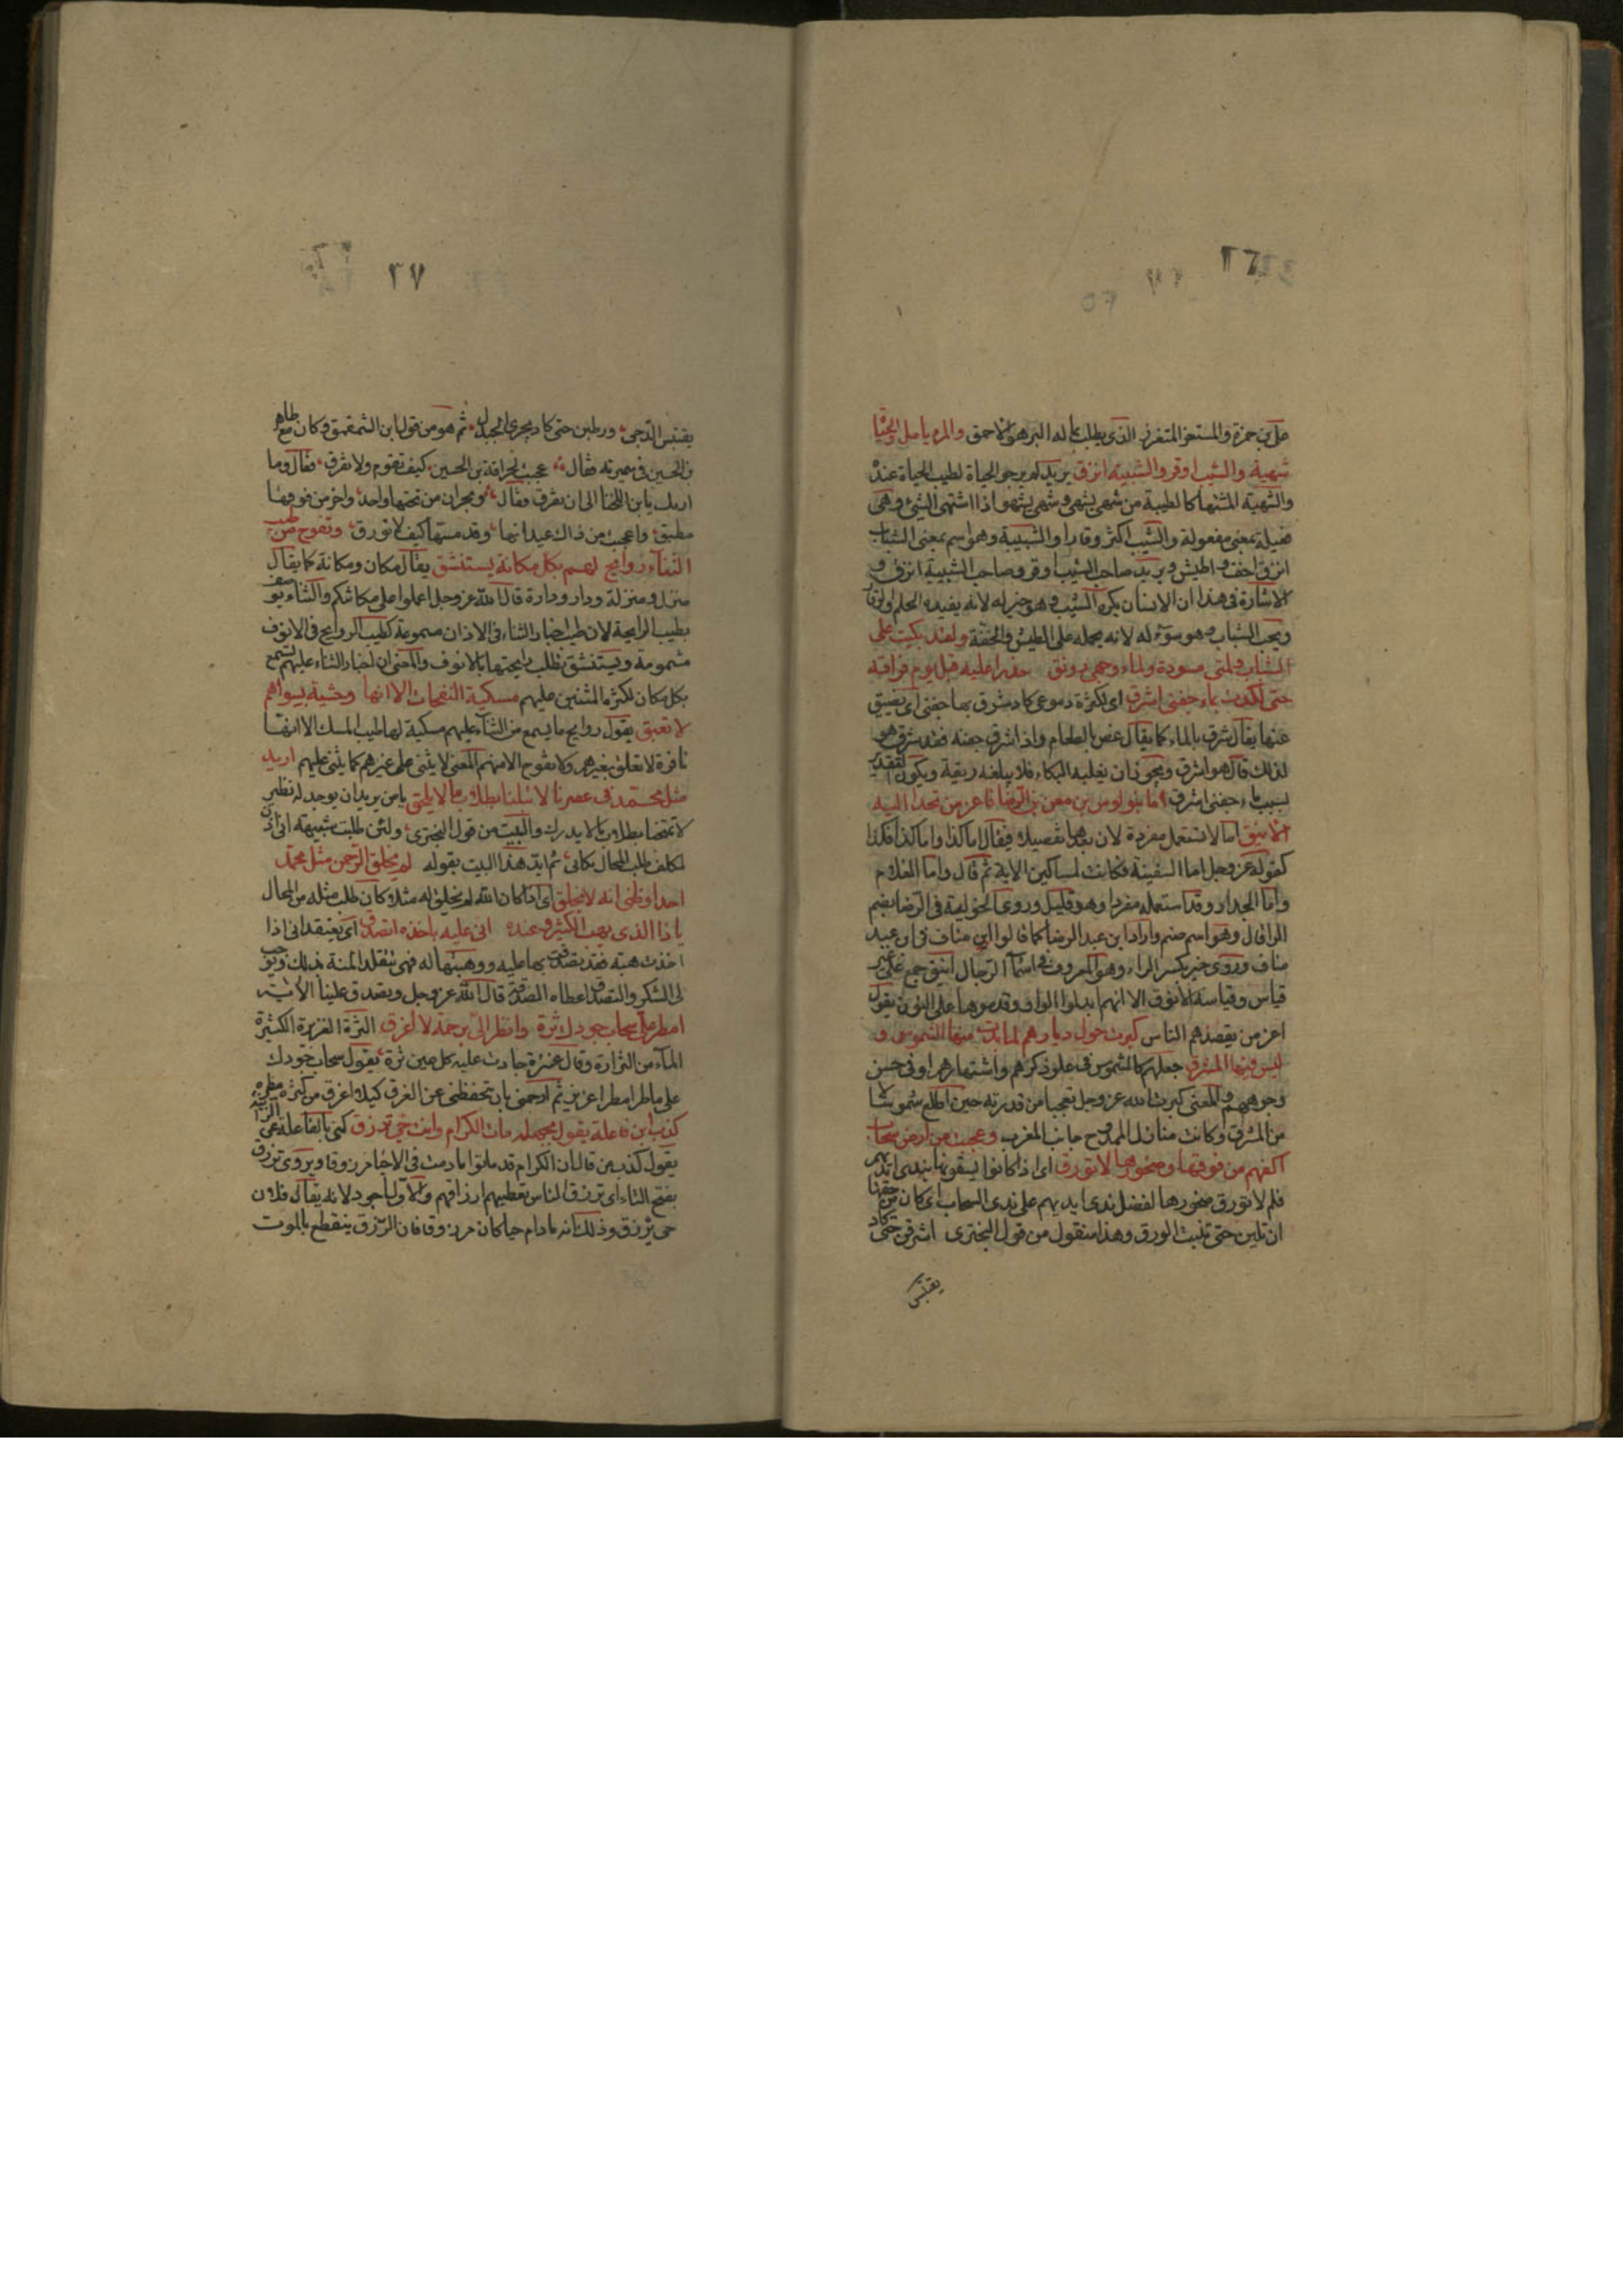 ٢٦
على بن حمزة والمستغر المتغرر الذى يطلب ما له البر هو الاحمق والمرء يامل والحياة
شهية والشيب اوقر والشبيبة انزق يريد المرء يرجو الحياة لطيب الحياة عنده
والشهية المشتهاة كالطيبة من شهى يشهى وشهى يشهو اذا اشتهى الشئ وهى
فعيلة بمعنى مفعولة والشيب اكثر وقارا والشبيبة وهو اسم بمعنى الشباب
انزق اخف واطيش ويريد صاحب الشيب اوقر وصاحب الشبيبة انزق و
الاشارة فى هذا ان الانسان يكره الشيب وهو خير له لانه يفيده الحلم والوقار
ويحب الشباب وهو سوء له لانه يحمله على الطيش والخفة ولقد بكيت على
الشباب ولمتى مسودة ولماء وجهى رونق حذرا عليه قبل يوم فراقه
حتى لكدت بماء جفنى اشرق اى لكثرة دموعى كاد يشرق بها جفنى اى يضيق
عنها يقال شرق بالماء كما يقال غص بالطعام واذا شرق جفنه فقد شرق هو
لذلك قال هو اشرق ويجوز ان يغلبه البكاء فلا يبلغه ريقه ويكون التقدير
بسبب ماء جفنى اشرق اما بنو اوس بن معن بن الرضا فاعز من تحدا اليه
الاينق اما لا تستعمل مفردة لان بعدها تفصيلا فيقال اما كذا واما كذا فكذا
كقوله عز وجل اما السفينة فكانت لمساكين الاية ثم قال واما الغلام
واما الجدار وقد استعمله مفردا وهو قليل وروى الخوليعة فى الرضا بضم
الرا قال وهو اسم صنم واراد ابن عبد الرضا كما قالوا ابن مناف فى ابن عبد
مناف وروى خير بكسر الراء وهو المعروف فى اسماء الرجال اينق جمع على غير
قياس وقياسه الانوق الا انهم ابدلوا الواو وقدموها على النون يقول
اعز من يقصدهم الناس كبرت حول ديارهم لما بدت منها الشموس و
ليس فيها المشرق جعلهم كالشموس فى علو ذكرهم واشتهارهم او فى حسن
وجوههم والمعنى كبرت الله عز وجل تعجبا من قدرته حين اطلع شموسا لا
من المشرق وكانت منازل الممدوح جانب المغرب وعجبت من ارض سحاب
اكفهم من فوقها وصخورها لا تورق اى اذا كانوا يسقونها بندى ايديهم
فلم لا تورق صخورها لفضل ندى ايديهم على ندى السحاب اى كان من حقها
ان تلين حتى تنبت الورق وهذا منقول من قول البحترى اشرقن حتى كاد
يقتبس
٢٧
يقتبس الدجى ورطبن حتى كاد يجرى الجندل ثم هو من قول ابن الشمقمق وكان مع طاهر
بن الحسين فى سميريته فقال عجبت لحراقة بن الحسين كيف تعوم ولا تغرق فقال وما
اربك يا بن اللخنا الى ان تغرق فقال وبحران من تحتها واحد واخر من فوقها
مطبق واعجب من ذاك عيدانها وقد مستها كيف لا تورق وتفوح من طيب
الثناء روايح لهم بكل مكانة يستنشق يقال مكان ومكانة كما يقال
منزل ومنزلة ودار ودارة قال الله عز وجل اعملوا على مكانتكم والثناء يوصف
بطيب الرايحة لان طيب اخبار الثناء فى الاذان مسموعة كطيب الروايح فى الانوف
مشمومة ويستنشق تطلب رايحتها بالانوف والمعنى ان اخبار الثناء عليهم تسمع
بكل مكان لكثرة المثنين عليهم مسكية النفحات الا انها وحشية بسواهم
لا تعبق يقول روايح ما يسمع من الثناء عليهم مسكية لها طيب المسك الا انها
نافرة لا تعلق بغيرهم ولا تفوح الا منهم المعنى لا يثنى على غيرهم كما يثنى عليهم اريد
مثل محمد فى عصرنا لا تبلنا بطلاب ما لا يلحق يا من يريد ان يوجد له نظير
لا تمتحنا بطلاب ما لا يدرك والبيت من قول البحترى ولئن طلبت شبيهه انى اذن
لمكلف طلب المحال ركابى ثم ايد هذا البيت بقوله لم يخلق الرحمن مثل محمد
احدا وظنى انه لا يخلق اى اذا كان الله لم يخلق له مثلا كان طلب مثله من المحال
يا ذا الذى يهب الكثير وعنده انى عليه باخذه اتصدق اى يعتقد انى اذا
اخذت هبته فقد تصدقت بها عليه ووهبتها له فهى تتقلد المنة بذلك ويوجب
لى الشكر والتصدق اعطاء الصدقة قال الله عز وجل وتصدق علينا الاية
امطر على سحاب جودك ثرة وانظر الى برحمة لا اغرق الثرة الغزيرة الكثيرة
الماء من الثرارة وقال عنترة جادت عليه كل عين ثرة يقول سحاب جودك
على ماطر امطر اعزيز ثم ارحمنى بان تحفظنى عن الغرق كيلا اغرق من كثرة مطره
كذب ابن فاعلة يقول بجهله مات الكرام وانت حى ترزق كنى بالفاعلة عن الزانية
يقول كذب من قال ان الكرام قد ماتوا ما دمت فى الاحيا مرزوقا ويروى ترزق
بفتح التاء اى ترزق الناس تعطيهم ارزاقهم والاول اجود لانه يقال فلان
حى يرزق وذلك انه ما دام حيا كان مرزوقا فان الرزق ينقطع بالموت